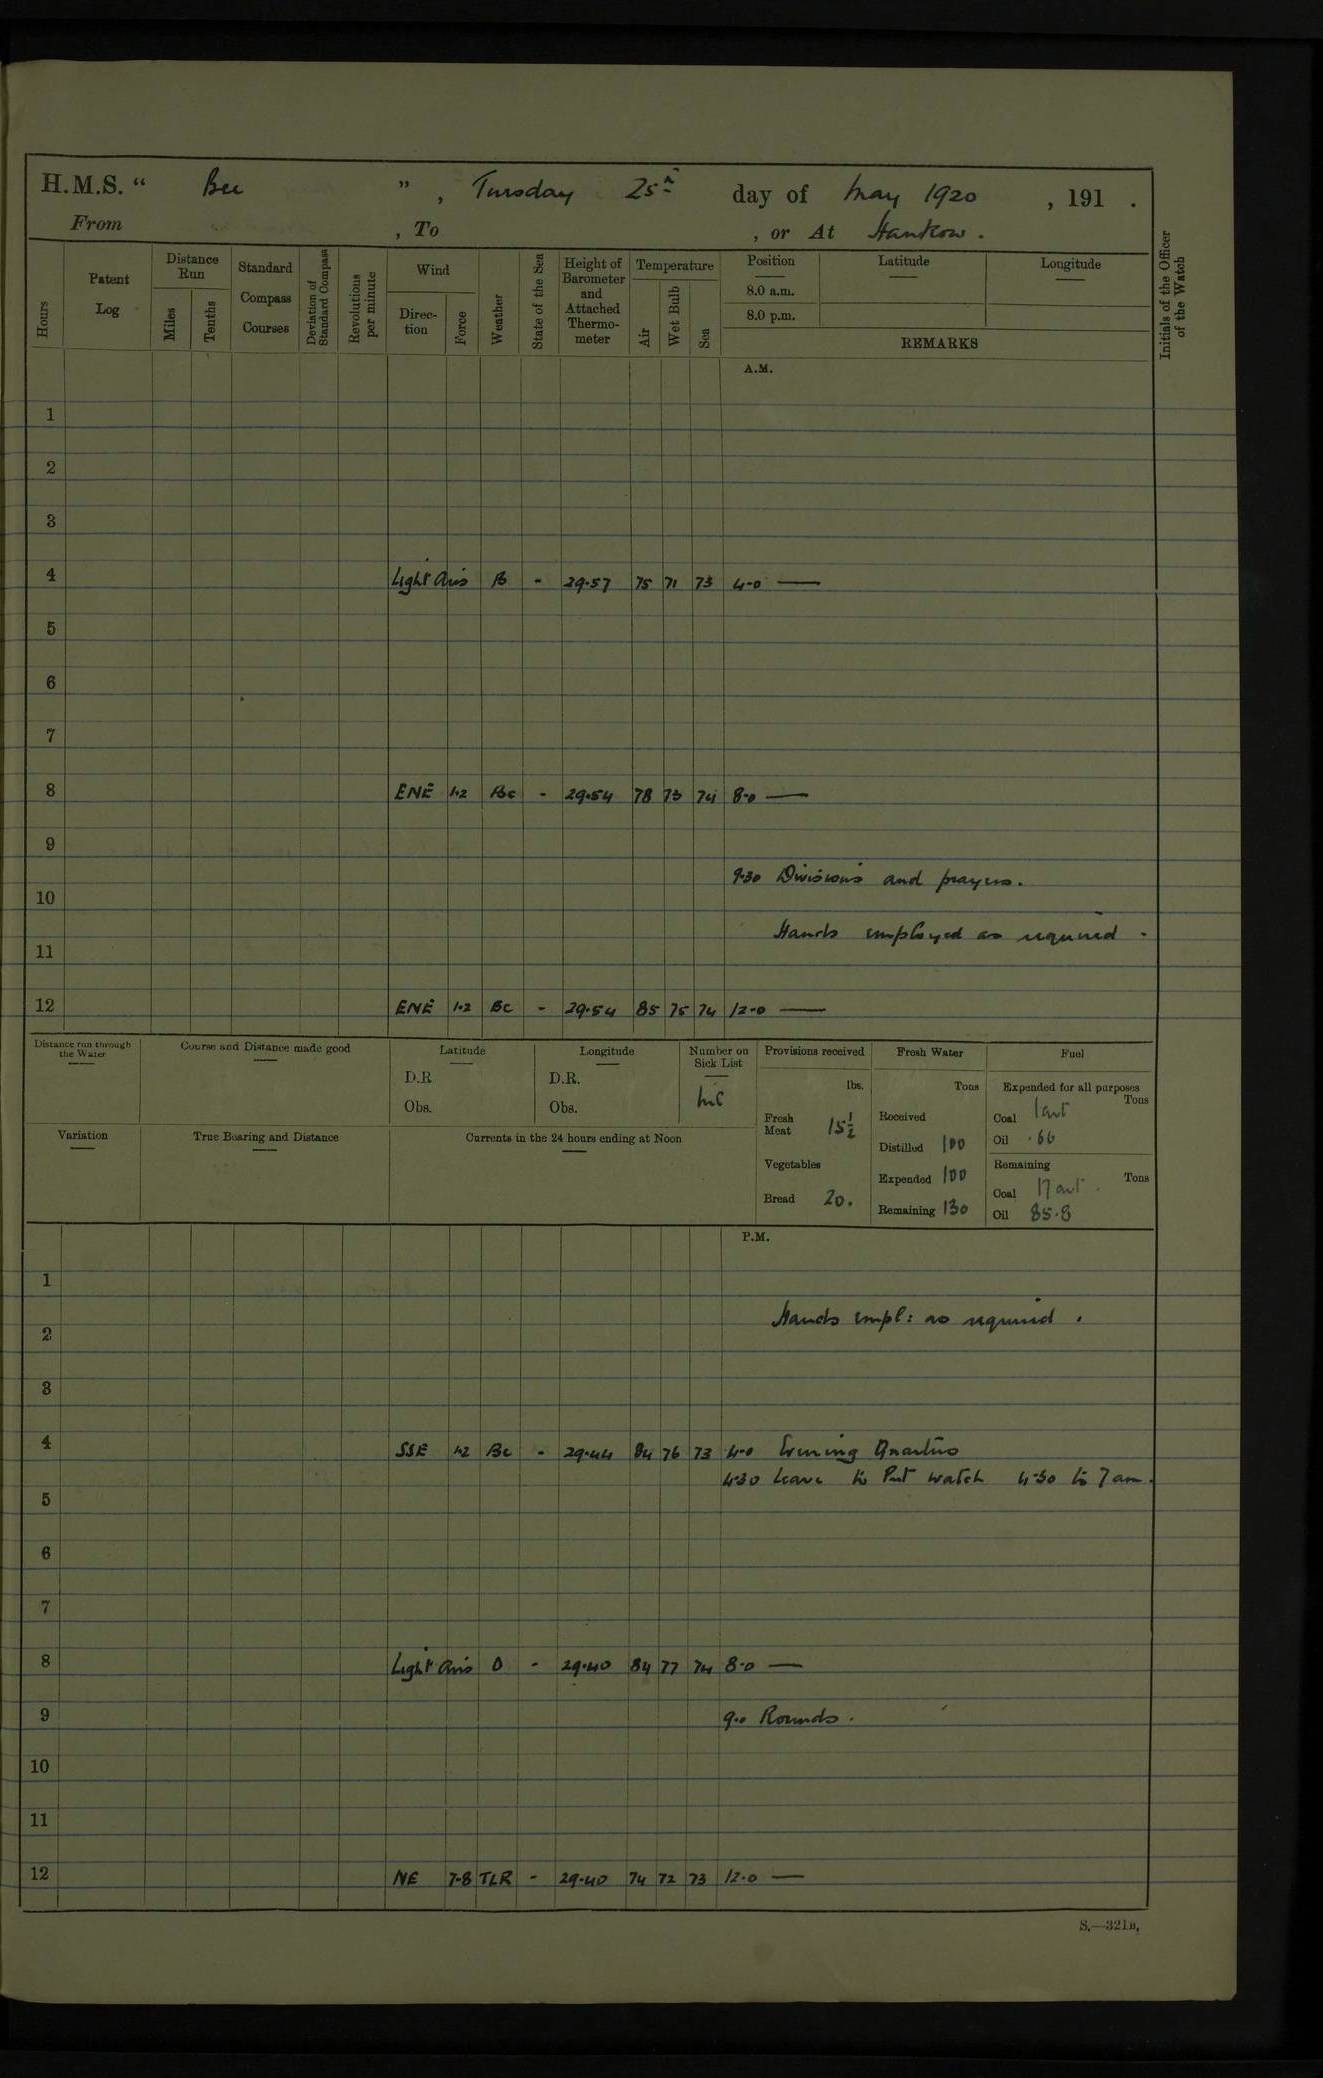 H.M.S. “ Bee ” , Tuesday 25th day of May 1920 , 191 .
From , To , or At Hankow .
Hours
Patent Log
Distance Run
Miles
Tenths
Standard Compass Courses
Deviation of Standard Compass
Revolutions per minute
Wind
Direction
Force
Weather
State of the Sea
Height of Barometer and Attached Thermometer
Temperature
Air
Wet Bulb
Sea
Position
8.0 a.m.
8.0 p.m.
Latitude
Longitude
REMARKS
Initials of the Officer of the Watch
A.M.
1
2
3
4 Light airs B - 29.57 75 71 73 4.0 —
5
6
7
8 ENE 1.2 Bc - 29.54 78 73 74 8.0 —
9
9.30 Divisions and prayers.
10
Hands employed as required .
11
12 ENE 1.2 Bc - 29.54 85 75 74 12.0 —
Distance run through the Water
Course and Distance made good
Latitude
D.R
Obs.
Longitude
D.R.
Obs.
Number on Sick List
nil
Provisions received
lbs.
Fresh Meat 15½
Vegetables
Bread 20.
Fresh Water
Tons
Received
Distilled 100
Expended 100
Remaining 130
Fuel
Expended for all purposes
Tons
Coal 1 cwt
Oil .66
Remaining
Tons
Coal 17 cwt .
Oil 85.8
Variation
True Bearing and Distance
Currents in the 24 hours ending at Noon
P.M.
1
Hands empl: as required .
2
3
4 SSE 1.2 Bc - 29.44 84 76 73 4.0 Evening Quarters
4.30 Leave to Port watch 4.30 to 7 am.
5
6
7
8 Light airs O - 29.40 84 77 74 8.0 —
9 9.0 Rounds .
10
11
12 NE 7.8 TLR - 29.40 74 72 73 12.0 —
S.—321B.